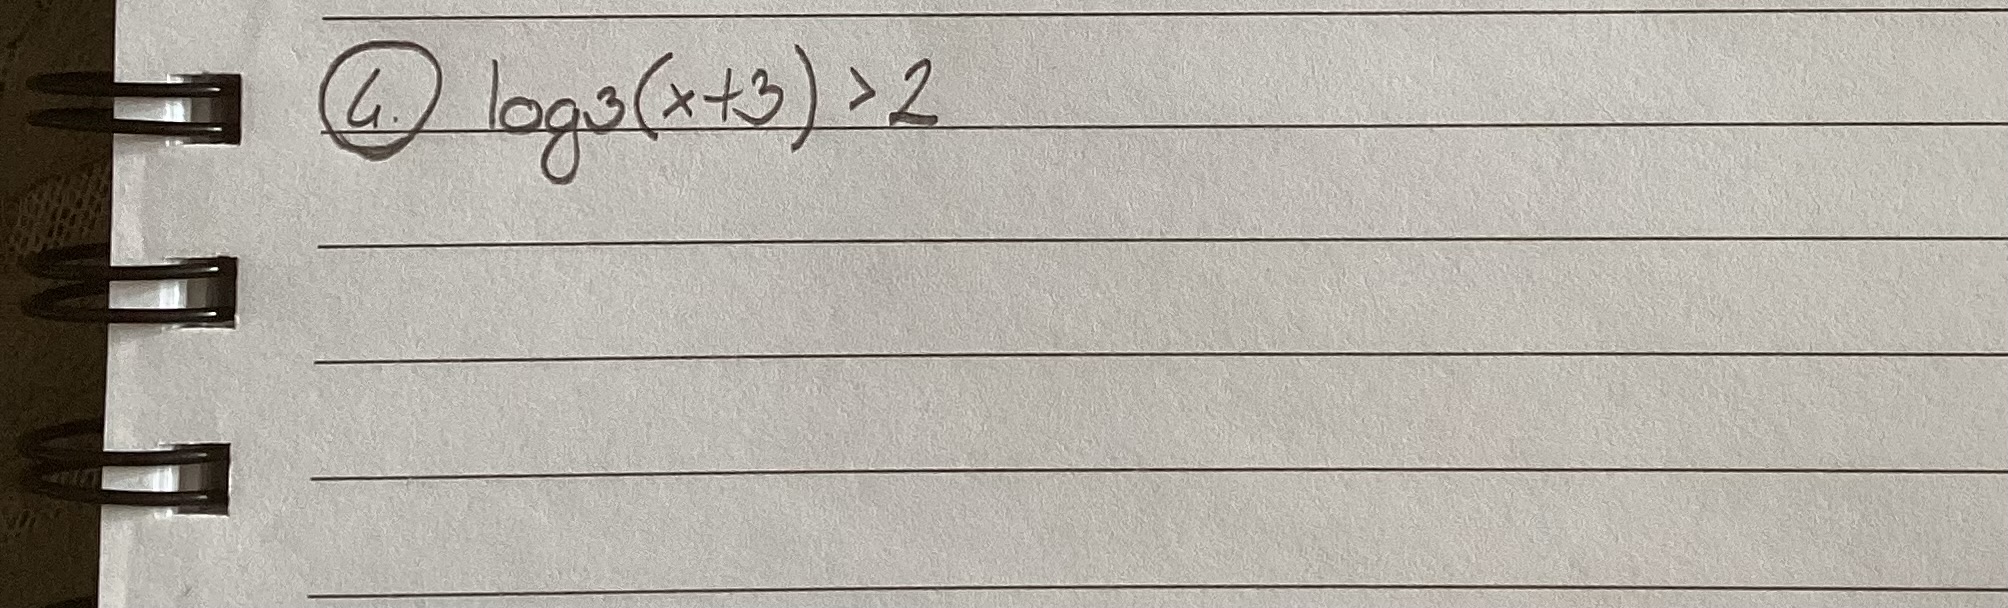 4. log3(x+3) > 2